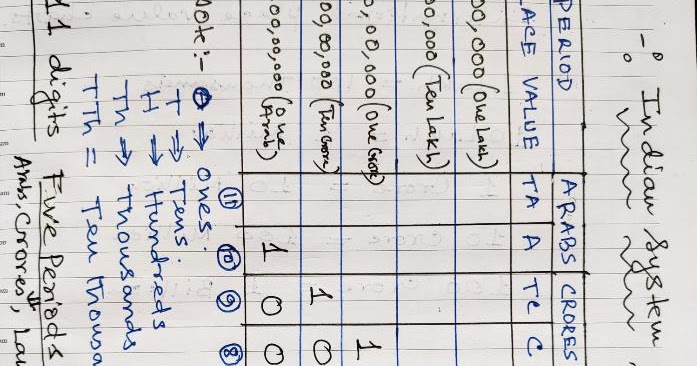 -: Indian System
PERIOD ARABS CRORES
ACE VALUE TA A TC C
00,000 (One Lakh)
00,000 (Ten Lakh)
0,00,000 (One Crore) 1
00,00,000 (Ten Crore) 1 0
00,00,00,000 (One Arab) 1 0 0
11 10 9 8
Note:- O → ones.
T → Tens.
H → Hundreds
Th → Thousands
T Th = Ten Thousa
11 digits Five Periods
Arabs, Crores, La